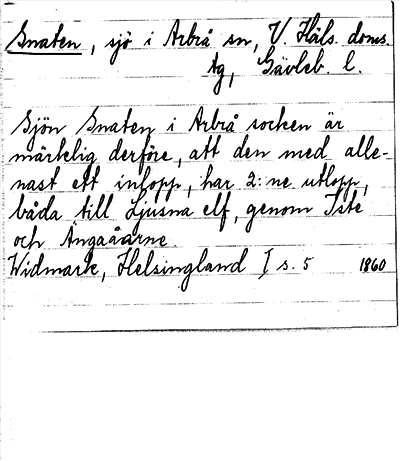 Snaten, sjö i Arbrå sn, V. Häls. doms.
tg, Gävleb. l.
Sjön Snaten i Arbrå socken är
märkelig derföre, att den med alle-
nast ett inlopp, har 2:ne utlopp,
båda till Ljusna elf, genom Iste
och Angaåarne.
Widmark, Helsingland I s. 5 1860